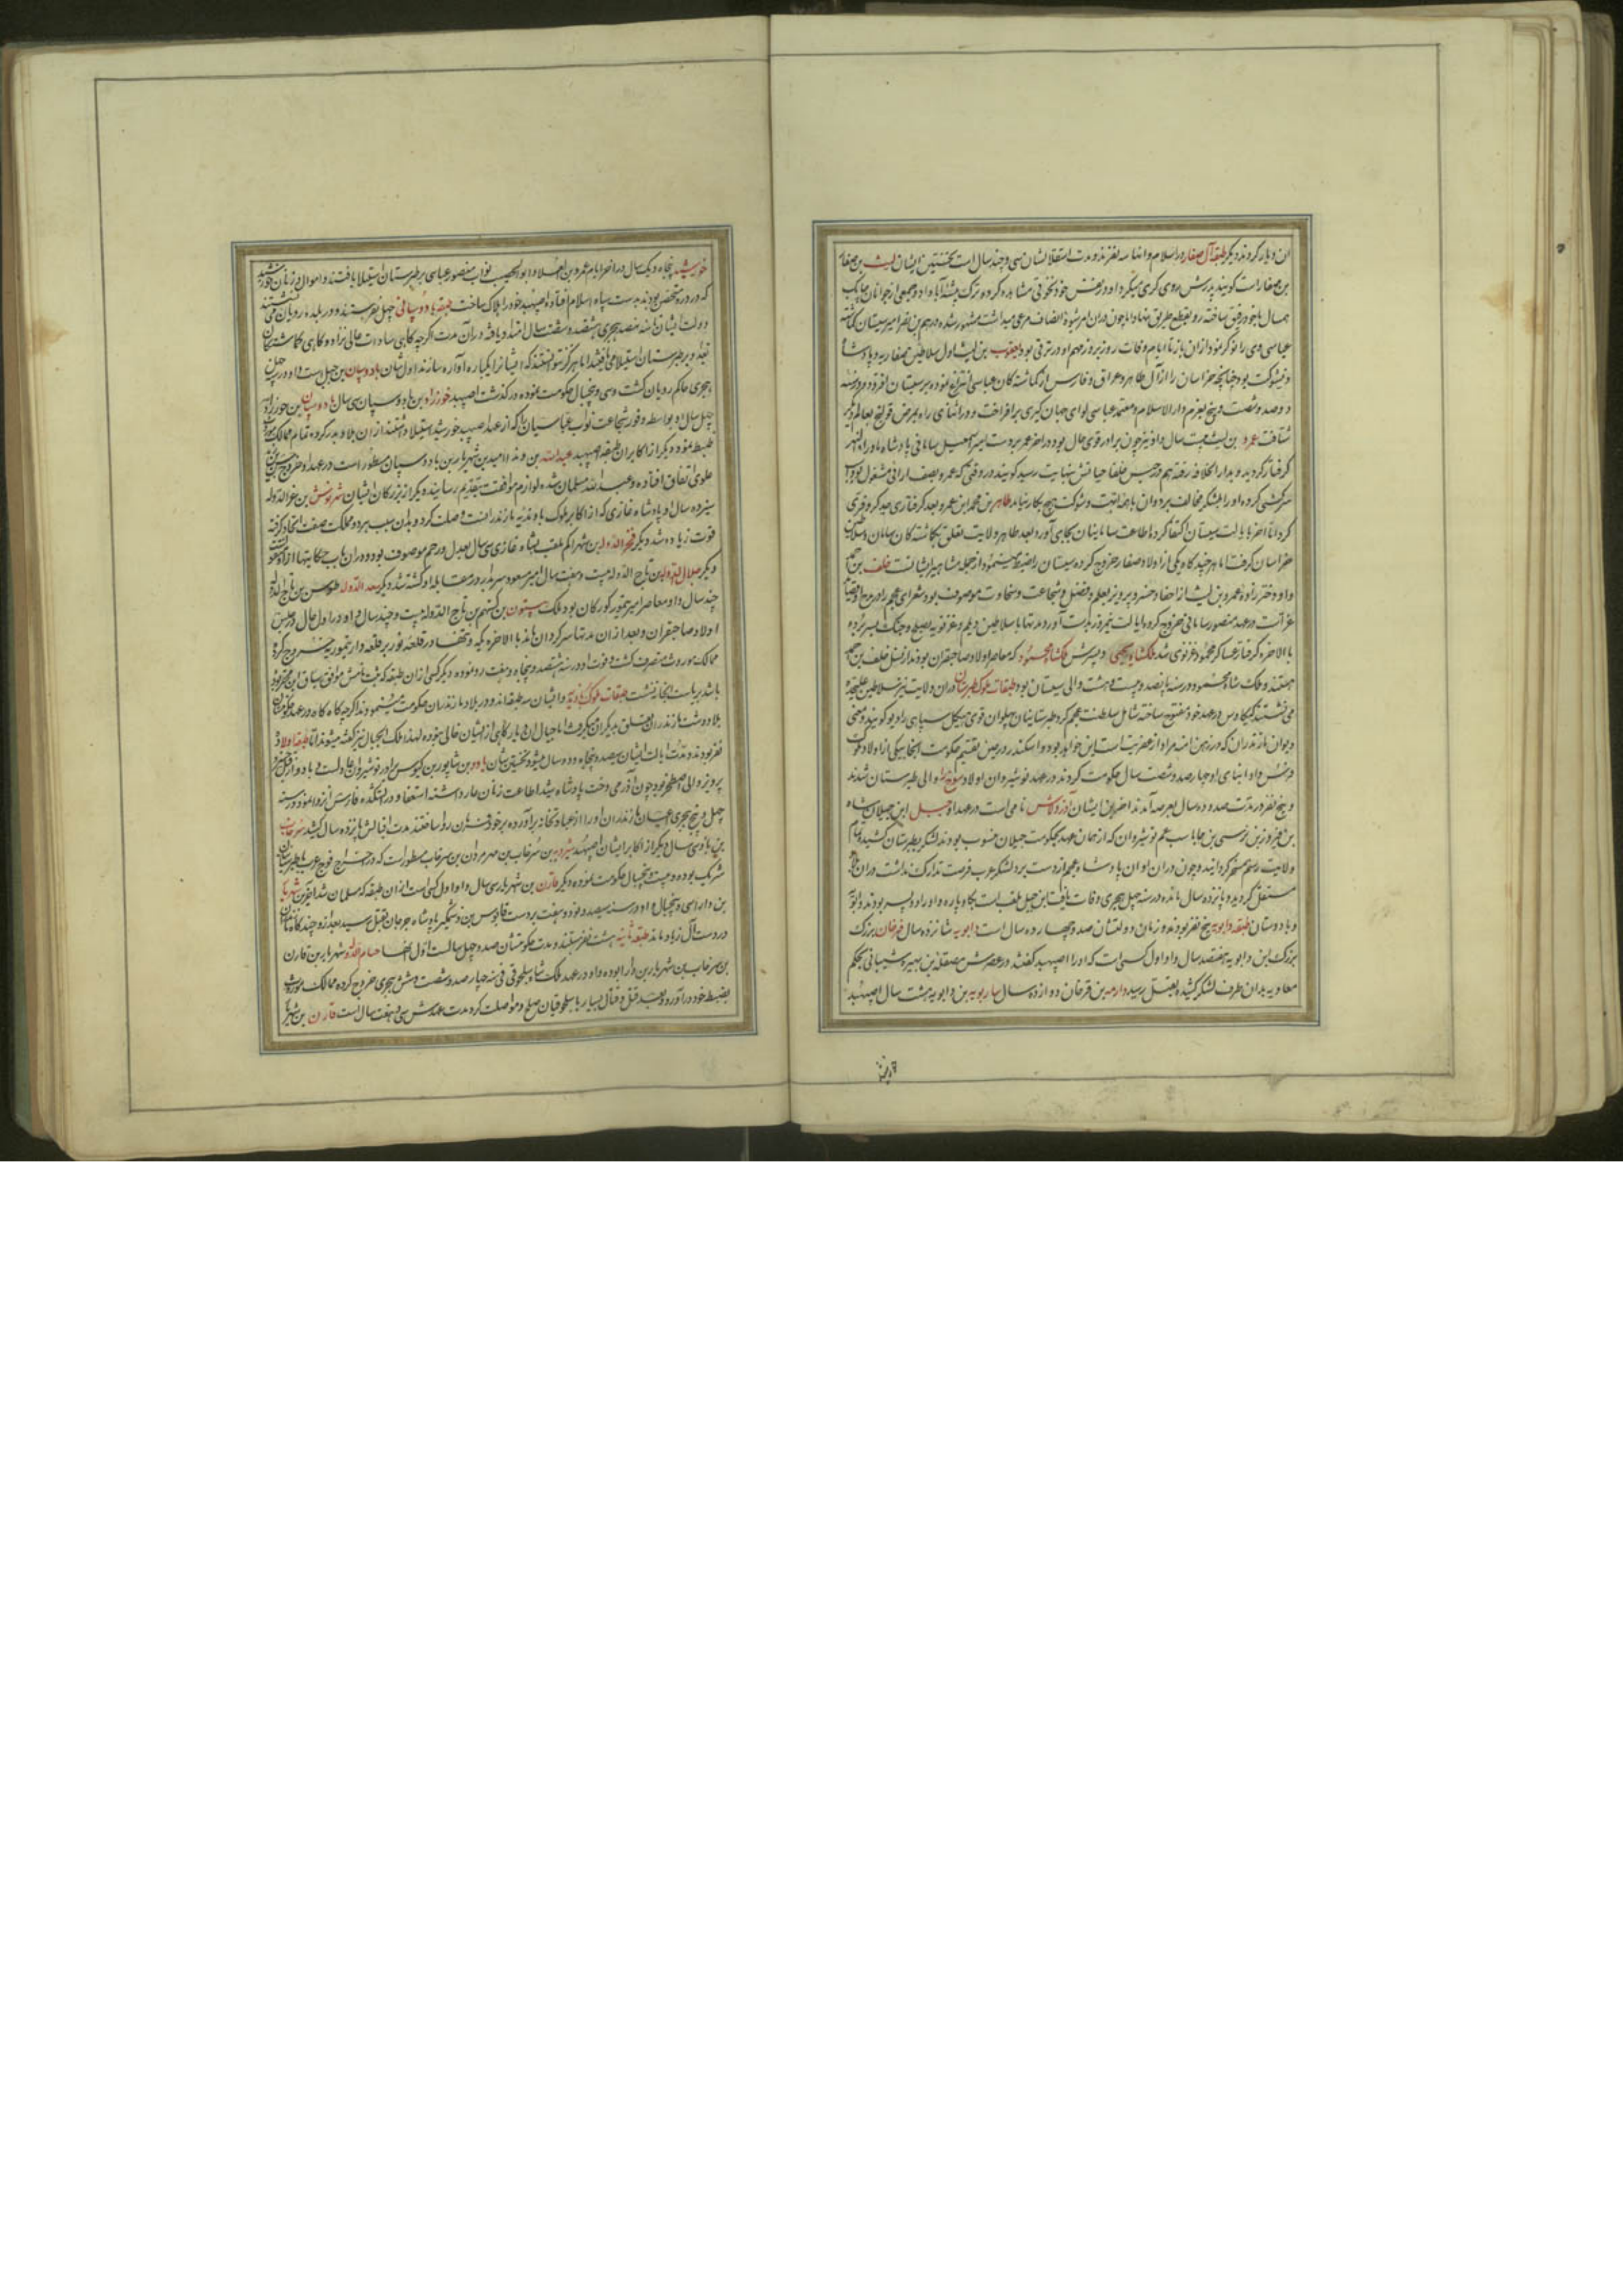 ان دیار کردند دیگر طبقه آل صفار در اسلام و انها سه نفرند و مدت استقلالشان سی و چند سال است نخستین ایشان لیث بن صفار
بن صفار است کویند پدرش روی کری میکرد او در نفس خود نخوتی مشاهده کرده ترک پیشه آبا داد و جمعی از جوانان چابک
همسال با خود رفیق ساخته رو بقطع طریق نهاد اما چون دران امر شیوه انصاف مرعی میداشت مشهور شده درهم بن نصر امیر سیستان کماشته
عباسی وی را نوکر نمود ازان باز تا ایام وفات روز بروز مهم او در ترقی بود یعقوب بن لیث اول سلاطین صفاریه و پادشاه
ذیشوکت بود چنانچه خراسان را از آل طاهر و عراق و فارس از کماشتکان عباسی انتزاع نموده بر سیستان افزود و در سنه
دوصد و شصت و پنج بعزم دار الاسلام و معتمد عباسی لوای جهان کیری برافراخت و در اثنای راه بمرض قولنج بعالم دیکر
شتافت عمرو بن لیث بیست سال و او نیز چون برادر قوی حال بود در اخر عمر بر دست امیر اسمعیل سامانی پادشاه ماوراء النهر
کرفتار کردید و بدار الخلافه رفته هم در حبس خلفا حیاتش بنهایت رسید کویند در وقتی که عمرو بصف ارائی مشغول بود اسب
سرکشی کرده او را بلشکر مخالف برد و ان باهمه ابهت و شوکت هیچ بکار نیامد طاهر بن محمد ابن عمرو بعد کرفتاری جد کر و فری
کرد اما اخر بایالت سیستان اکتفا کرده اطاعت سامانیان بجای آورد و بعد طاهر ولایت تعلق بکماشتکان سامان و سلاطین
خراسان کرفت اما هر چند کاه یکی از اولاد صفار خروج کرده سیستان را ضبط مینمود از جمله مشاهیر ایشانست خلف بن احمد
و او دختر زاده عمرو بن لیث از احفاد خسرو پرویز بعلم و فضل و شجاعت و سخاوت موصوف بود شعرای عجم را در مدح او قصاید
غراست در عهد منصور سامانی خروج کرده ایالت نیمروز بدست آورد مدتها با سلاطین دیلم و غزنویه بصلح و جنک بسر برده
بالاخره کرفتار عساکر محمود غزنوی شد ملکشاه یحیی و پسرش ملکشاه محمود که معاصر اولاد صاحبقران بودند از نسل خلف بن احمد
هستند و ملک شاه محمود در سنه پانصد و بیست و هشت والی سیستان بود طبقات ملوک طبرستان دران ولایت نیز سلاطین علیحده
می نشستند کیکاوس در عهد خود مفتوح ساخته شامل سلطنت عجم کرد طبرستانیان پهلوان قوی هیکل سپاهی را دیو کویند و معنی
دیوان مازندران که در زمن السنه مراد از همین جماعت است این خواهد بود و اسکندر در حین تقسیم حکومت انجا بیکی از اولاد ملوک
فرس داد ابنای او چهار صد و شصت سال حکومت کردند در عهد نوشیروان اولاد سوخرا والی طبرستان شدند
و پنج نفر در مدت صد و ده سال بعرصه آمدند اخرین ایشان آذرولاش نامی است در عهد او جیل ابن جیلانشاه
بن فیروز بن نرسی بن جاماسب عم نوشیروان که از همان عهد بحکومت جیلان منسوب بودند لشکر بطبرستان کشید و تمام
ولایت رستم مسخر کردانید و چون دران اوان پادشاه عجم از دست برد لشکر عرب فرصت تدارک نداشت دران ملک
مستقل کردید و پانزده سال مانده در سنه چهل هجری وفات یافت این جیل ملقب است بکاوباره و او را دو پسر بودند دابویه
و بادوستان طبقه دابویه پنج نفر بودند و زمان دولتشان صد و چهارده سال است دابویه شانزده سال فرخان بزرک
بزرک ابن دابویه هفده سال و او اول کسی است که او را اصپهبد گفتند در عصرش مصقله بن هبیره شیبانی بحکم
معاویه بدان طرف لشکر کشیده بقتل رسید دازمه بن فرخان دوازده سال سارویه بن دابویه هشت سال اصپهبد
خورشید
خورشید پنجاه و یک سال در اخر ایام عمرو بن العلا و ابو الخصیب نواب منصور عباسی بر طبرستان استیلا یافتند و اموال و زنان خورشید
که در دره متحصن بودند بدست سپاه اسلام افتاد و اصپهبد خود را هلاک ساخت طبقه بادوسپانی چهل نفر هستند و در بلده رویان می نشستند
دولت ایشان تا سنه نهصد هجری هشتصد و شصت سال امتداد یافته دران مدت اکرچه کاهی سادات عالی نژاد و کاهی کماشتکان
بغداد بر طبرستان استیلا می یافتند اما هرکز نتوانستند که ایشانرا یکباره آواره سازند اول شان بادوسپان بن جیل است و او در چهل
هجری حاکم رویان کشت و سی و پنج سال حکومت نموده درکذشت اصپهبد خورزاد بن بادوسپان سی سال بادوسپان بن خورزاد
چهل سال و بواسطه وفور شجاعت نواب عباسیان را که از عهد اصپهبد خورشید استیلا داشتند ازان بلاد بدر کرده تمام ممالک موروث
ضبط نمود و دیگر از اکابر ان طبقه اصپهبد عبدالله بن وندا امید بن شهریار بن بادوسپان مسطور است در عهد او خروج حسن بن زید
علوی اتفاق افتاده و عبدالله مسلمان شده لوازم موافقت بتقدیم رسانید و دیکر از بزرکان ایشان شهرنوش بن عز الدوله
سیزده سال و با شاه غازی که از اکابر ملوک باوندیه مازندران است وصلت کرد و بدان سبب بر دو مملکت صفت اتحاد کرفته
قوت زیاده شد دیگر فخر الدوله بن شهراکم ملقب بشاه غازی سی سال بعدل و رحم موصوف بوده و دران باب حکایتها ازو منقول است
دیگر جلال الدوله بن تاج الدوله بیست و هفت سال امیر مسعود سربدار در عهد او کشته شد دیگر سعد الدوله طوس بن تاج الدوله
چند سال و او معاصر امیر تیمور کورکان بود ملک بیستون بن کستهم بن تاج الدوله بیست و چند سال و او در اول حال در حبس
اولاد صاحبقران و بعد ازان مدتها سرکردان مانده بالاخره یکه و تنها در قلعه نور بر قلعه دار تیموریه خروج کرده
ممالک موروث متصرف کشت و فوت او در سنه هشتصد و پنجاه و هفت رو نموده و دیگر کسی ازان طبقه که ثبت نامش موافق سیاق این مختصر بود
باشد بریاست انجا ننشست طبقات ملوک باوندیه و ایشان سه طبقه اند و در بلاد مازندران حکومت مینمودند اکرچه کاه کاه در عهد حکومت شان
بلاد دشت مازندران متعلق بدیگران میکرفت اما جبال ان دیار کاهی از ایشان خالی نبوده لهذا ملک الجبال نیز کفته میشوند اما طبقه اولی
نفر بودند و مدت ایالت ایشان سیصد و پنجاه و دو سال میشود نخستین شان باو بن شاپور بن کیوس برادر نوشیروان عادلست و باو از قبل خسرو
پرویز والی اصطخر بود چون آذرمی دخت پادشاه شد اطاعت زنان عار داشته استعفا و در اتشکده فارس انزوا نمود در سنه
چهل و پنج هجری اعیان مازندران او را از عبادتخانه برآورده بر خود فرمان روا ساختند مدت اقبالش پانزده سال کشید سرخاب
بن باو سی سال دیکر از اکابر ایشان اصپهبد شروین بن سرخاب بن مهرمردان بن سرخاب مسطور است که در اخراج فوج عرب با طبرستان
شریک بوده و بیست و پنجسال حکومت نموده دیگر قارن بن شهریار سی سال و او اول کسی است ازان طبقه که مسلمان شد اخرین شهریار
بن دارا سی و پنجسال و او در سنه سیصد و نود و هفت بر دست قابوس بن وشمکیر پادشاه جرجان بقتل رسید بعد ازو چند کاه مازندران
در دست آل زیار ماند طبقه ثانیه هشت نفر هستند و مدت حکومتشان صد و چهل سالست اول انها حسام الدوله شهریار بن قارن
بن سرخاب بن شهریار بن دارا بوده و او در عهد ملک شاه سلجوقی فی سنه چهار صد و شصت و شش هجری خروج کرده ممالک موروث
بضبط خود درآورد و بعد قتل و قتال بسیار با سلجوقیان صلح و مواصلت کرد مدت عهدش سی و هفت سال است قارن بن شهریار